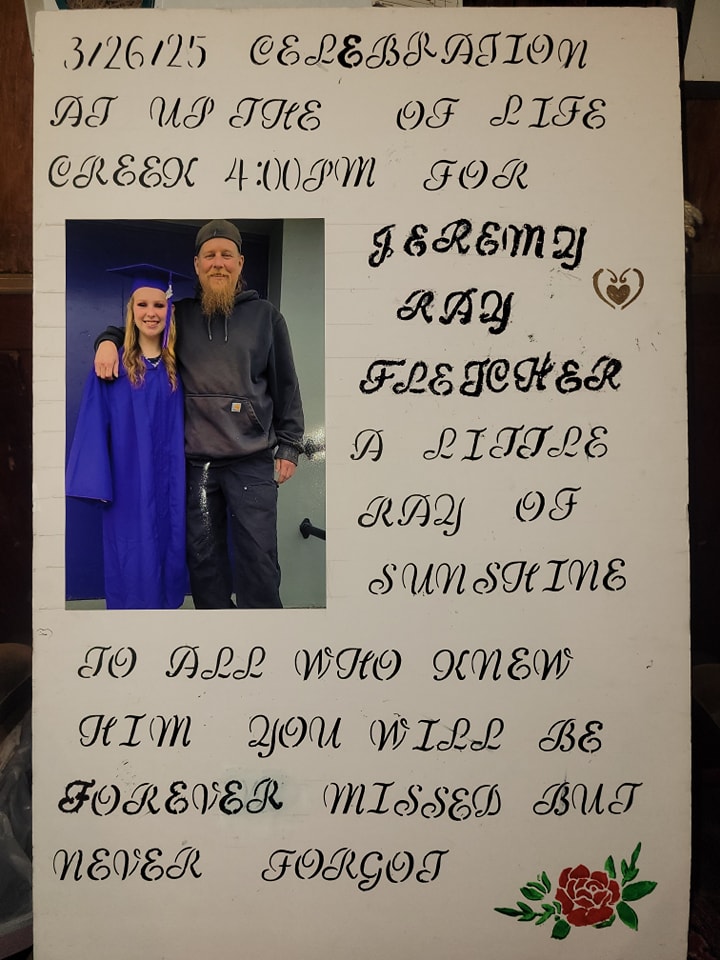 3/26/25 CELEBRATION
AT UP THE OF LIFE
CREEK 4:00PM FOR
JEREMY
RAY
FLETCHER
A LITTLE
RAY OF
SUNSHINE
TO ALL WHO KNEW
HIM YOU WILL BE
FOREVER MISSED BUT
NEVER FORGOT